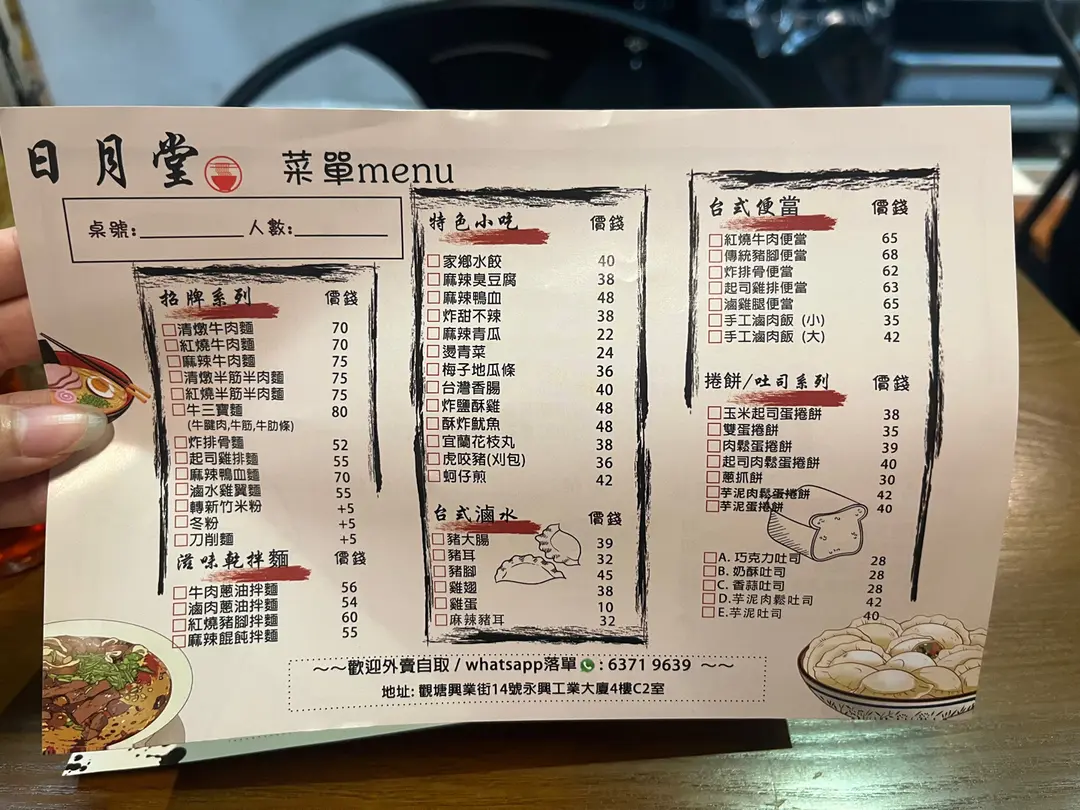 日月堂
菜單menu
桌號:__________人數:__________
招牌系列 價錢
清燉牛肉麵 70
紅燒牛肉麵 70
麻辣牛肉麵 75
清燉半筋半肉麵 75
紅燒半筋半肉麵 75
牛三寶麵 80
(牛腱肉,牛筋,牛肋條)
炸排骨麵 52
起司雞排麵 55
麻辣鴨血麵 70
滷水雞翼麵 55
轉新竹米粉 +5
冬粉 +5
刀削麵 +5
滋味乾拌麵 價錢
牛肉蔥油拌麵 56
滷肉蔥油拌麵 54
紅燒豬腳拌麵 60
麻辣餛飩拌麵 55
特色小吃 價錢
家鄉水餃 40
麻辣臭豆腐 38
麻辣鴨血 48
炸甜不辣 38
麻辣青瓜 22
燙青菜 24
梅子地瓜條 36
台灣香腸 40
炸鹽酥雞 48
酥炸魷魚 48
宜蘭花枝丸 38
虎咬豬(刈包) 36
蚵仔煎 42
台式滷水 價錢
豬大腸 39
豬耳 32
豬腳 45
雞翅 38
雞蛋 10
麻辣豬耳 32
台式便當 價錢
紅燒牛肉便當 65
傳統豬腳便當 68
炸排骨便當 62
起司雞排便當 63
滷雞腿便當 65
手工滷肉飯 (小) 35
手工滷肉飯 (大) 42
捲餅/吐司系列 價錢
玉米起司蛋捲餅 38
雙蛋捲餅 35
肉鬆蛋捲餅 39
起司肉鬆蛋捲餅 40
蔥抓餅 30
芋泥肉鬆蛋捲餅 42
芋泥蛋捲餅 40
A. 巧克力吐司 28
B. 奶酥吐司 28
C. 香蒜吐司 28
D.芋泥肉鬆吐司 42
E.芋泥吐司 40
~~歡迎外賣自取 / whatsapp落單 : 6371 9639 ~~
地址: 觀塘興業街14號永興工業大廈4樓C2室